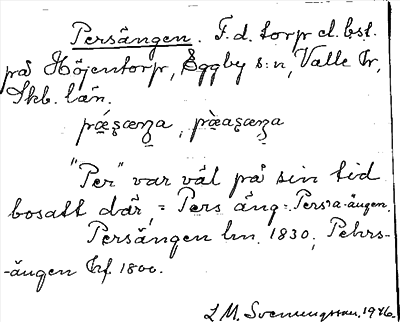 Persängen. F.d. torp el. bst.
på Höjentorp, Eggby s:n, Valle hr,
Skb. län.
pǽʂæŋa, pæ̀aʂæŋa
"Per" var väl på sin tid
bosatt där, = Pers äng = Persa-ängen.
Persängen lm. 1830; Pehrs-
-ängen hf. 1800.
L.M. Svenungsson. 1946.